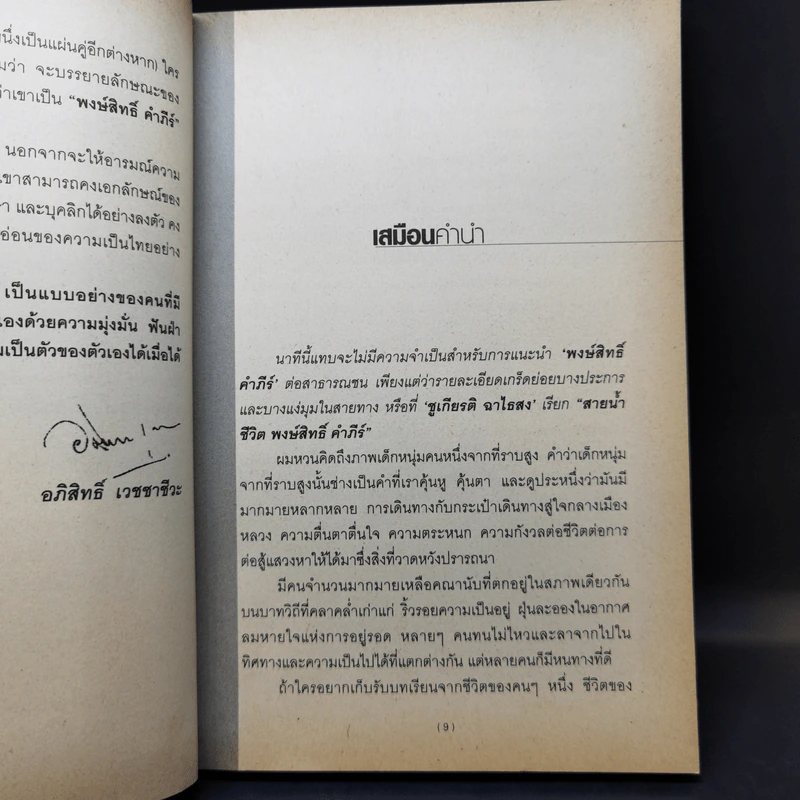 นึ่งเป็นแผ่นคู่อีกต่างหาก) ใคร
ว่า จะบรรยายลักษณะของ
เขาเป็น “พงษ์สิทธิ์ คำภีร์”
นอกจากจะให้อารมณ์ความ
เขาสามารถคงเอกลักษณ์ของ
และบุคลิกได้อย่างลงตัว คง
อ่อนของความเป็นไทยอย่าง
เป็นแบบอย่างของคนที่มี
เองด้วยความมุ่งมั่น ฟันฝ่า
เป็นตัวของตัวเองได้เมื่อได้
อภิสิทธิ์ เวชชาชีวะ
เสมือนคำนำ
นาทีนี้แทบจะไม่มีความจำเป็นสำหรับการแนะนำ ‘พงษ์สิทธิ์
คำภีร์’ ต่อสาธารณชน เพียงแต่ว่ารายละเอียดเกร็ดย่อยบางประการ
และบางแง่มุมในสายทาง หรือที่ ‘ชูเกียรติ ฉาไธสง’ เรียก “สายน้ำ
ชีวิต พงษ์สิทธิ์ คำภีร์”
ผมหวนคิดถึงภาพเด็กหนุ่มคนหนึ่งจากที่ราบสูง คำว่าเด็กหนุ่ม
จากที่ราบสูงนั้นช่างเป็นคำที่เราคุ้นหู คุ้นตา และดูประหนึ่งว่ามันมี
มากมายหลากหลาย การเดินทางกับกระเป๋าเดินทางสู่ใจกลางเมือง
หลวง ความตื่นตาตื่นใจ ความตระหนก ความกังวลต่อชีวิตต่อการ
ต่อสู้แสวงหาให้ได้มาซึ่งสิ่งที่วาดหวังปรารถนา
มีคนจำนวนมากมายเหลือคณานับที่ตกอยู่ในสภาพเดียวกัน
บนบาทวิถีที่คลาคล่ำเก่าแก่ ริ้วรอยความเป็นอยู่ ฝุ่นละอองในอากาศ
ลมหายใจแห่งการอยู่รอด หลายๆ คนทนไม่ไหวและลาจากไปใน
ทิศทางและความเป็นไปได้ที่แตกต่างกัน แต่หลายคนก็มีหนทางที่ดี
ถ้าใครอยากเก็บรับบทเรียนจากชีวิตของคนๆ หนึ่ง ชีวิตของ
(9)